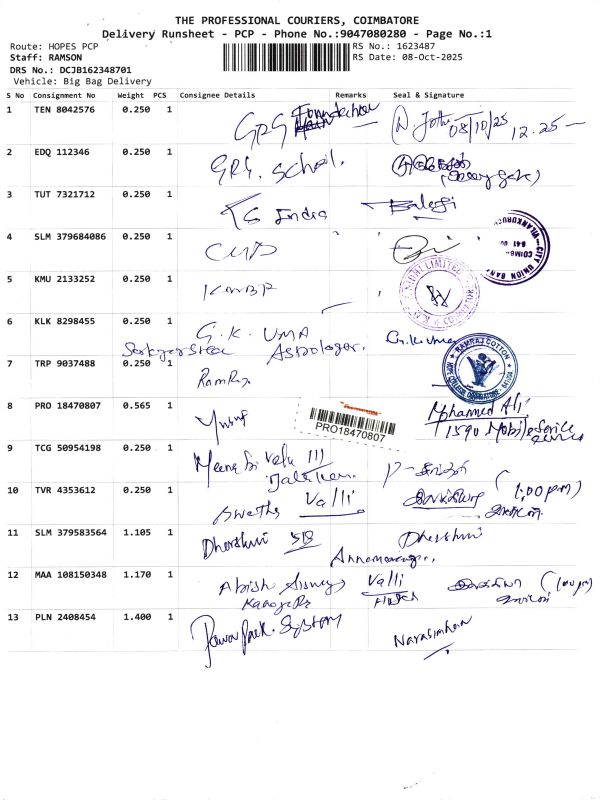 THE PROFESSIONAL COURIERS, COIMBATORE
Delivery Runsheet - PCP - Phone No.:9047080280 - Page No.:1
Route: HOPES PCP
RS No.: 1623487
Staff: RAMSON
RS Date: 08-Oct-2025
DRS No.: DCJB162348701
Vehicle: Big Bag Delivery
S No Consignment No Weight PCS Consignee Details Remarks Seal & Signature
1 TEN 8042576 0.250 1 GRG Foundation 08/10/25 12.25
2 EDQ 112346 0.250 1 GRG. School.
3 TUT 7321712 0.250 1 TG India Balaji
4 SLM 379684086 0.250 1 CUB
CITY UNION BANK
5 KMU 2133252 0.250 1
LIMITED
6 KLK 8298455 0.250 1 G.K. UMA G.K. Uma
Astrologer.
7 TRP 9037488 0.250 1 RamRaj
RAMRAJ COTTON
8 PRO 18470807 0.565 1 Yusuf Mohamed Ali
PRO18470807
1590 Mobile Service
9 TCG 50954198 0.250 1 Meena
10 TVR 4353612 0.250 1 Swetha Valli (1.00 pm)
11 SLM 379583564 1.105 1 Dharshini Dharshini
12 MAA 108150348 1.170 1 Valli (1.00 pm)
13 PLN 2408454 1.400 1 Power Pack. System
Narasimhan